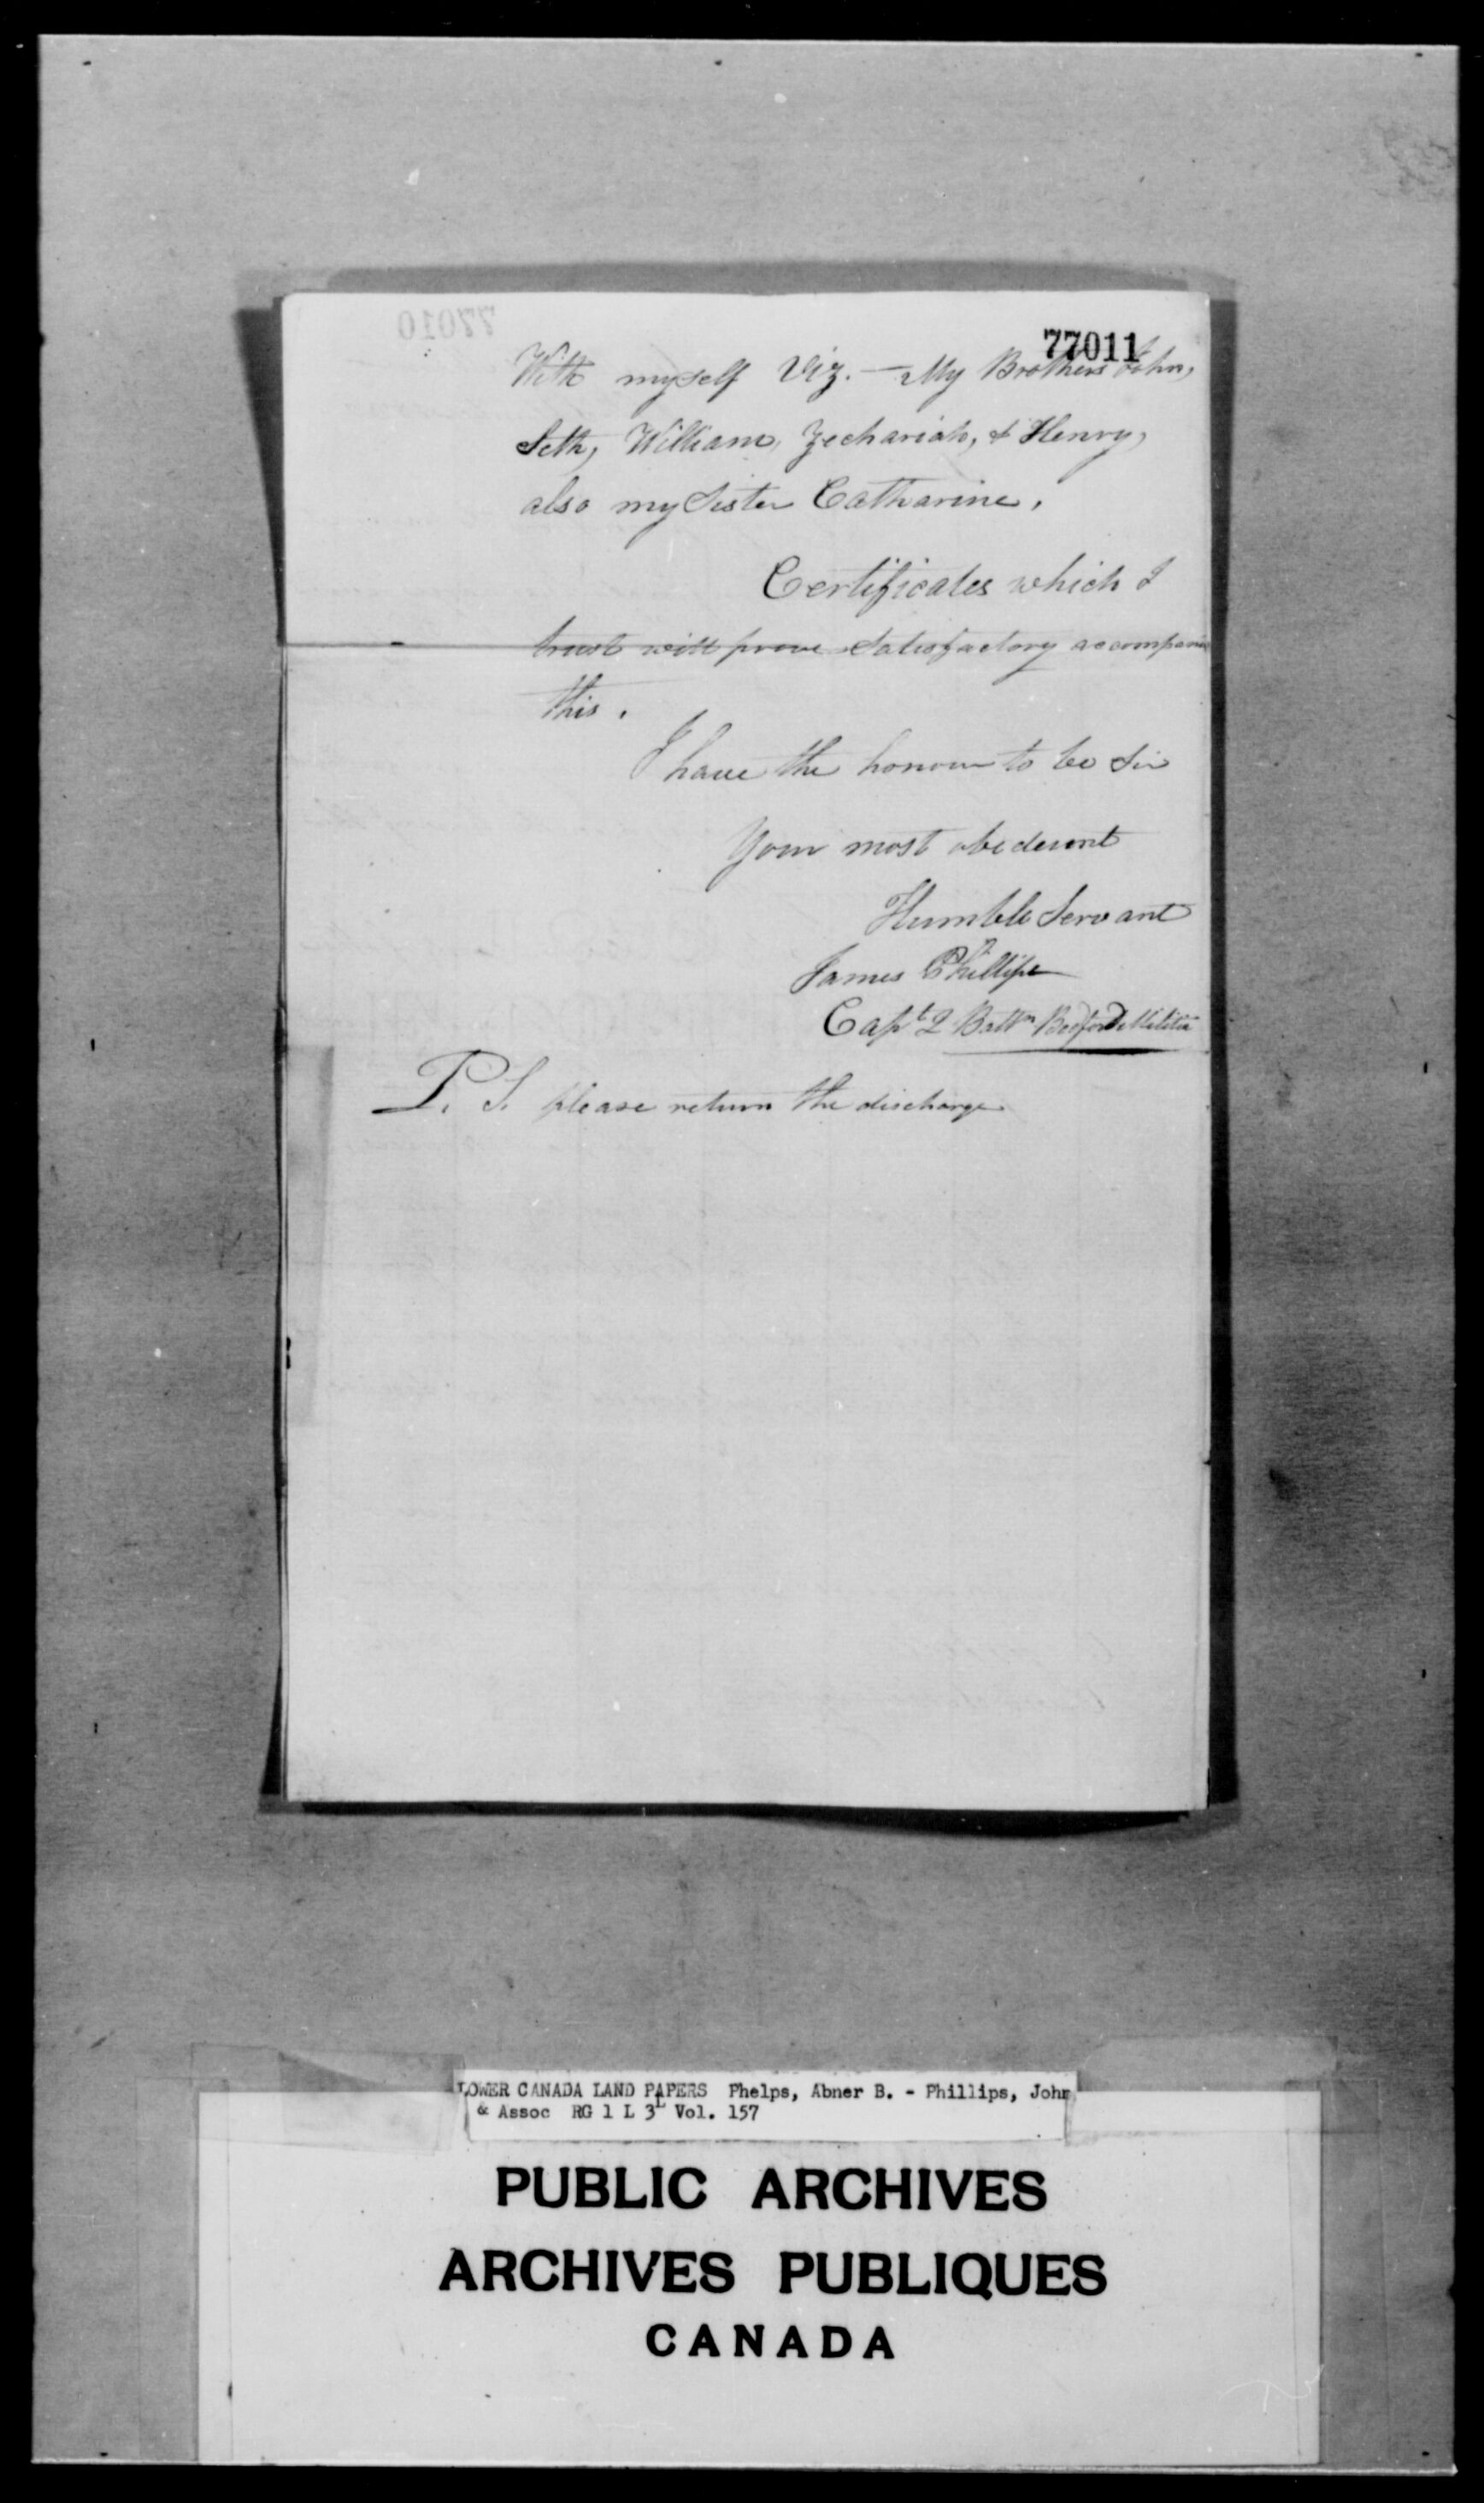 77010
77011
With myself Viz. — My Brothers John,
Seth, William, Zechariah, & Henry,
also my Sister Catharine.
Certificates which I
trust will prove Satisfactory accompanies
this.
I have the honour to be Sir
Your most obedeient
Humble Servant
James Phillips
Capt 2 Battn Bedford Militia
P. S. please return the discharge
LOWER CANADA LAND PAPERS Phelps, Abner B. - Phillips, John
& Assoc RG 1 L 3L Vol. 157
PUBLIC ARCHIVES
ARCHIVES PUBLIQUES
CANADA